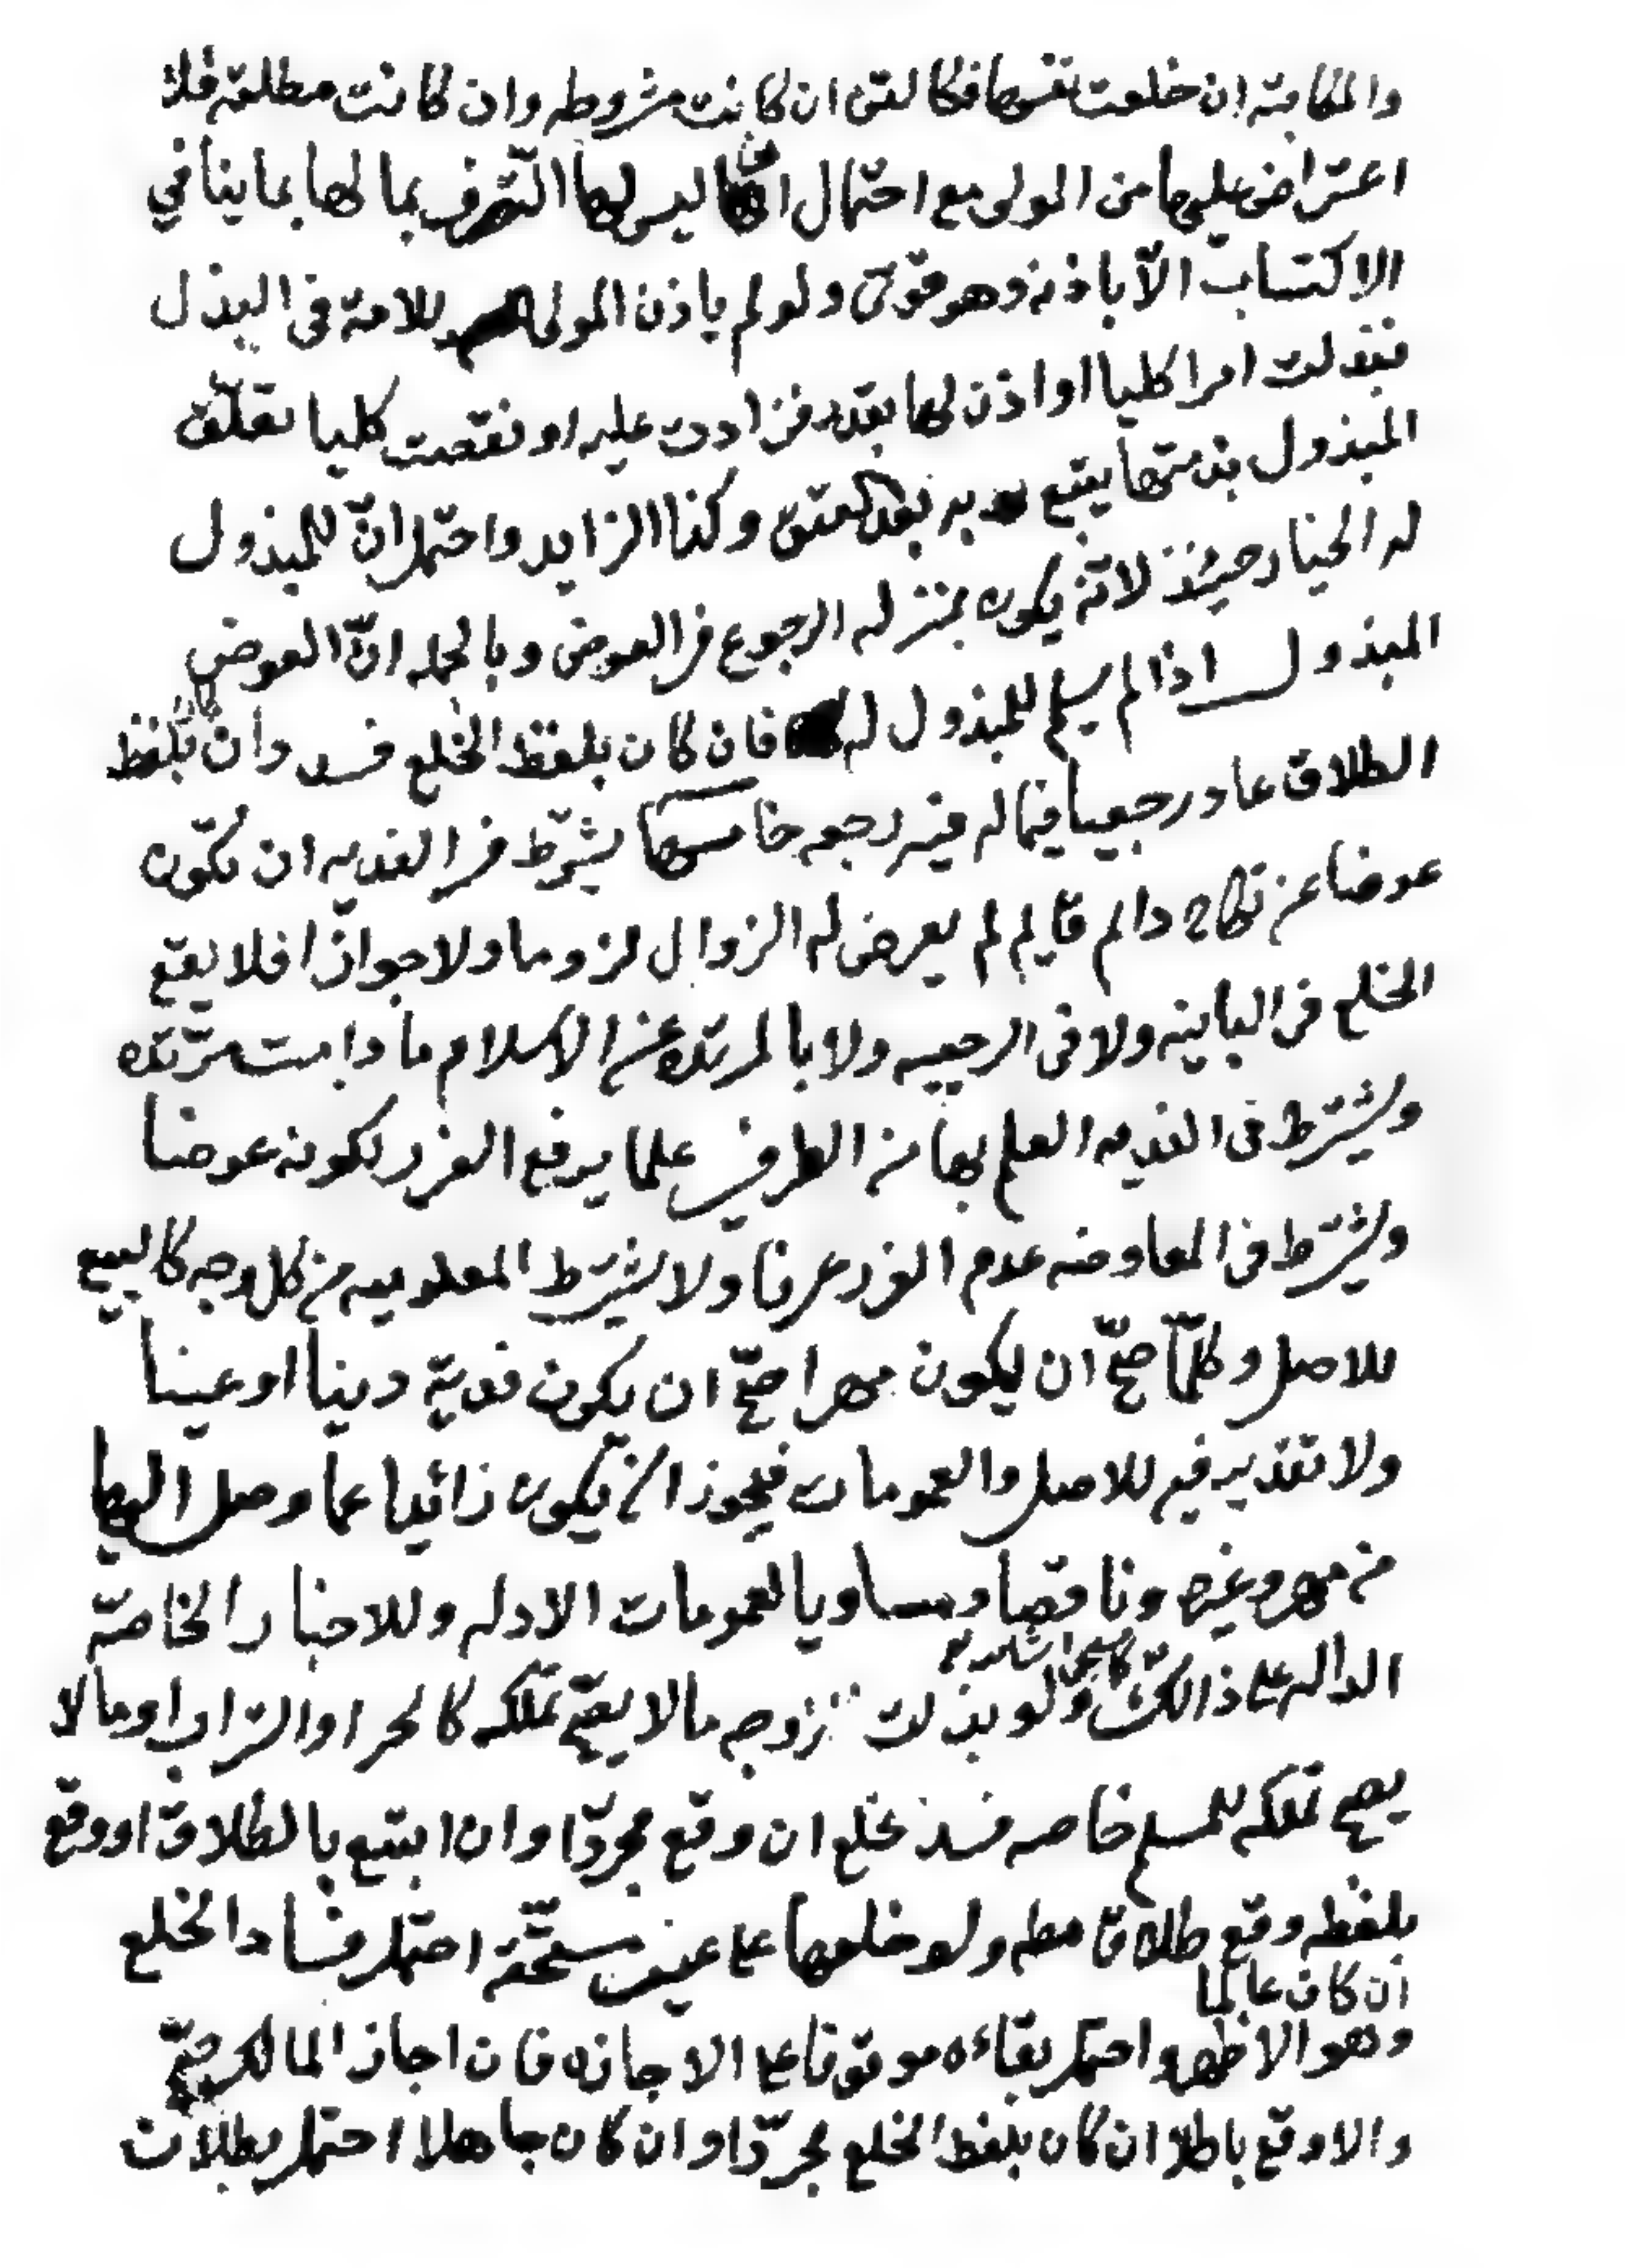 والمكاتبة ان خلعت نفسها فكالقن ان كانت مشروطه وان كانت مطلقه فلا
اعتراض عليها من المولى مع احتمال ان ليس لها التصرف بمالها بما ينافي
الاكتساب الّا باذنه وهو قوىّ ولو لم ياذن المولى للامة فى البذل
فبذلت امرا كليا او اذن لها بقدر فزادت عليه او نقصت كليا تعلّق
المبذول بذمتها يتبع به بعد العتق وكذا الزايد واحتمل انّ للمبذول
له الخيار حينئذ لانّه يكون بمنزله الرجوع فى العوض وبالجمله انّ العوض
المبذول اذا لم يسلم للمبذول له فان كان بلفظ الخلع فسد وان كان بلفظ
الطلاق عاد رجعيا فيما له فيه رجعه خامسها يشترط فى الفديه ان تكون
عوضا عن نكاح دائم قايم لم يعرض له الزوال لزوما ولا جوازا فلا يقع
الخلع فى الباينه ولا فى الرجعيه ولا بالمرتده عن الاسلام ما دامت مرتده
ويشترط فى الفديه العلم بها من الطرفين علما يرفع الغرر لكونه عوضا
ويشترط فى المعاوضه عدم الغرر عرفا ولا يشترط المعلوميه من كل وجه كالبيع
للاصل وكلّما صحّ ان يكون مهرا صحّ ان يكون فدية دينا او عينا
ولا تقدير فيه للاصل والعمومات فيجوز ان يكون زائدا عما وصل اليها
من مهر وغيره وناقصا ومساويا لعمومات الادله وللاخبار الخاصّة
الداله على ذالك ولو بذلت الزوجه ما لا يصحّ تملكه كالحر او التراب او ما لا
يصح تملكه للمسلم خاصه فسد الخلع ان وقع مجردّا وان اتبع بالطلاق او وقع
بلفظه وقع طلاقا مطه ولو خلعها على عين مستحقّة احتمل فساد الخلع
ان كان عالما
وهو الاظهر واحتمل بقاءه موقوفا على الاجازه فان اجاز المالك صحّ
والا وقع باطلا ان كان بلفظ الخلع مجردّا وان كان جاهلا احتمل بطلان